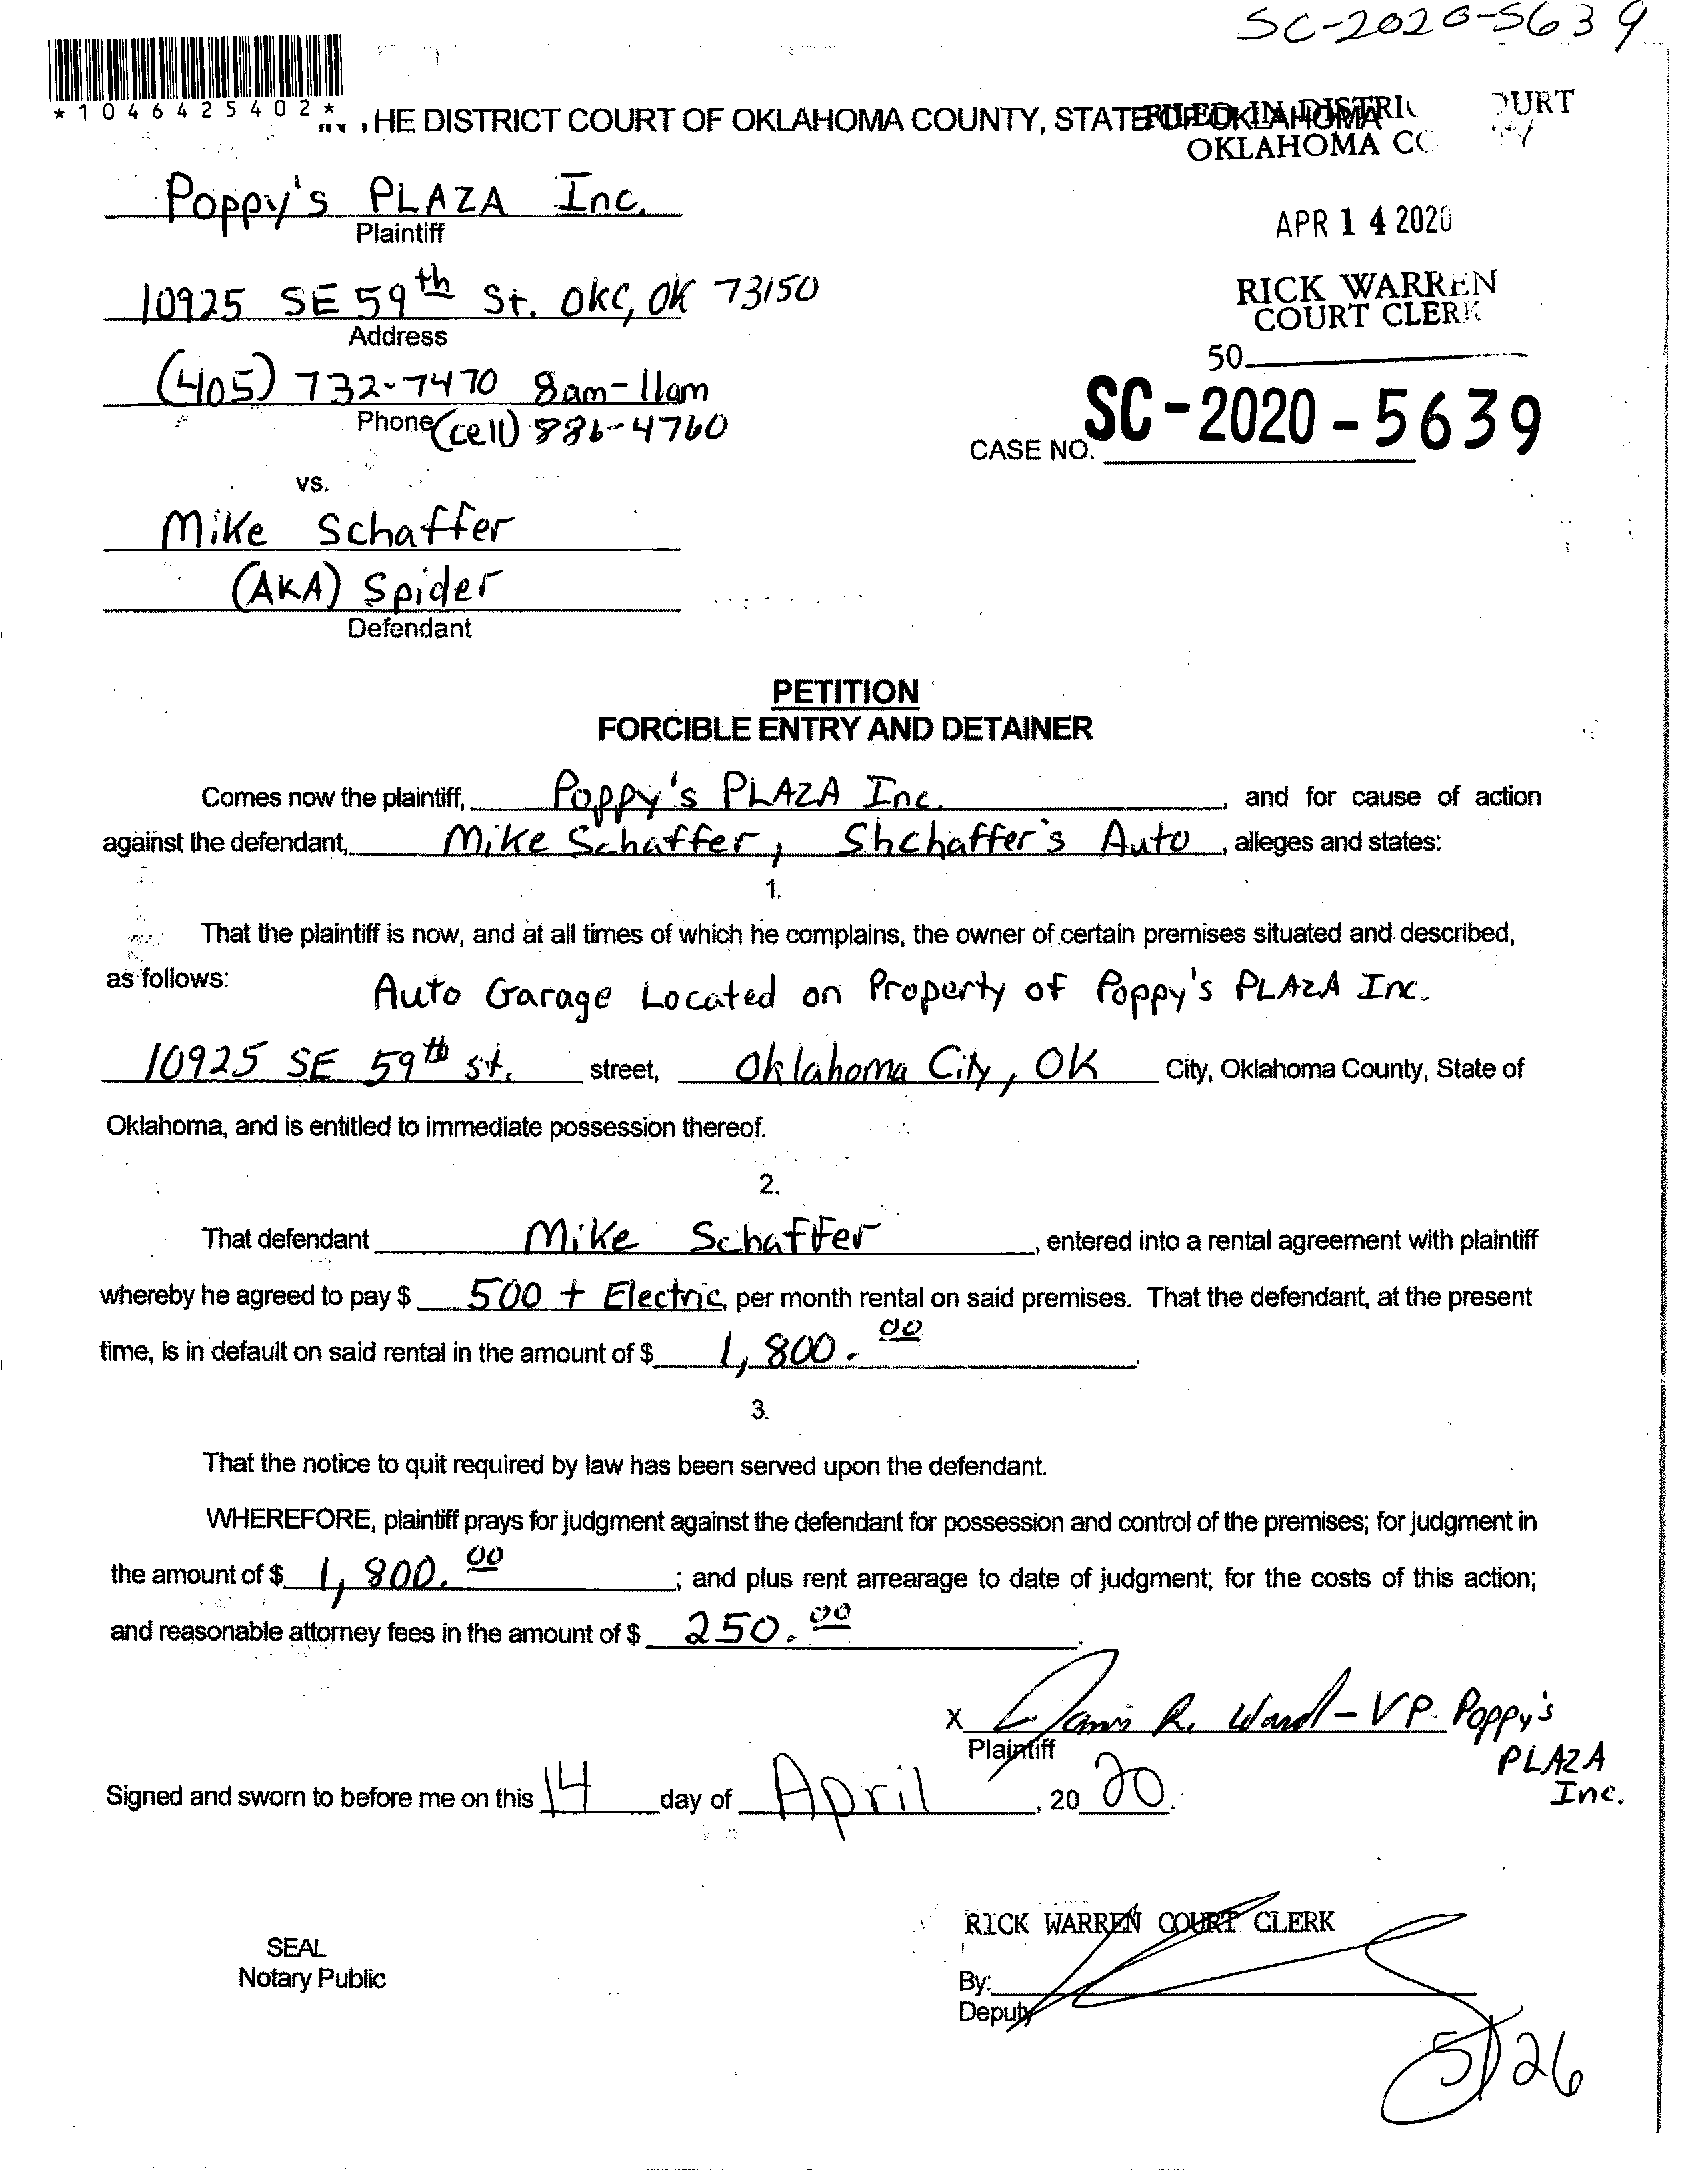 SC-2020-5639
*1046425402*
HE DISTRICT COURT OF OKLAHOMA COUNTY, STATE OF OKLAHOMA
FILED IN DISTRI OURT
OKLAHOMA CO
Poppy's PLAZA Inc.
Plaintiff
APR 14 2020
10925 SE 59th St. OKC, OK 73150
Address
RICK WARREN
COURT CLERK
50
(405) 732-7470 8am-11am
Phone (cell) 886-4760
CASE NO. SC-2020-5639
vs.
Mike Schaffer
(AKA) Spider
Defendant
PETITION
FORCIBLE ENTRY AND DETAINER
Comes now the plaintiff, Poppy's PLAZA Inc. , and for cause of action
against the defendant, Mike Schaffer, Shchaffer's Auto , alleges and states:
1.
That the plaintiff is now, and at all times of which he complains, the owner of certain premises situated and described,
as follows: Auto Garage Located on Property of Poppy's PLAZA Inc.
10925 SE 59th st. street, Oklahoma City, OK City, Oklahoma County, State of
Oklahoma, and is entitled to immediate possession thereof.
2.
That defendant Mike Schaffer , entered into a rental agreement with plaintiff
whereby he agreed to pay $ 500 + Electric, per month rental on said premises. That the defendant, at the present
time, is in default on said rental in the amount of $ 1,800.00 .
3.
That the notice to quit required by law has been served upon the defendant.
WHEREFORE, plaintiff prays for judgment against the defendant for possession and control of the premises; for judgment in
the amount of $ 1,800.00 ; and plus rent arrearage to date of judgment; for the costs of this action;
and reasonable attorney fees in the amount of $ 250.00 .
X R. Ward - VP. Poppy's
PLAZA
Inc.
Plaintiff
Signed and sworn to before me on this 14 day of April , 20 20.
RICK WARREN COURT CLERK
SEAL
Notary Public
By:
Deputy
5/26